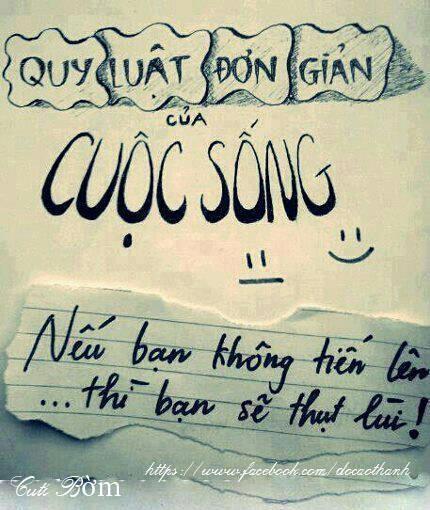 QUY LUẬT ĐƠN GIẢN
CỦA
CUỘC SỐNG
Nếu bạn không tiến lên
...thì bạn sẽ thụt lùi!
https://www.facebook.com/docaothanh
Cuti Bờm